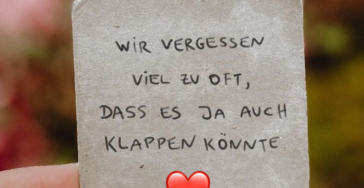 WIR VERGESSEN
VIEL ZU OFT,
DASS ES JA AUCH
KLAPPEN KÖNNTE